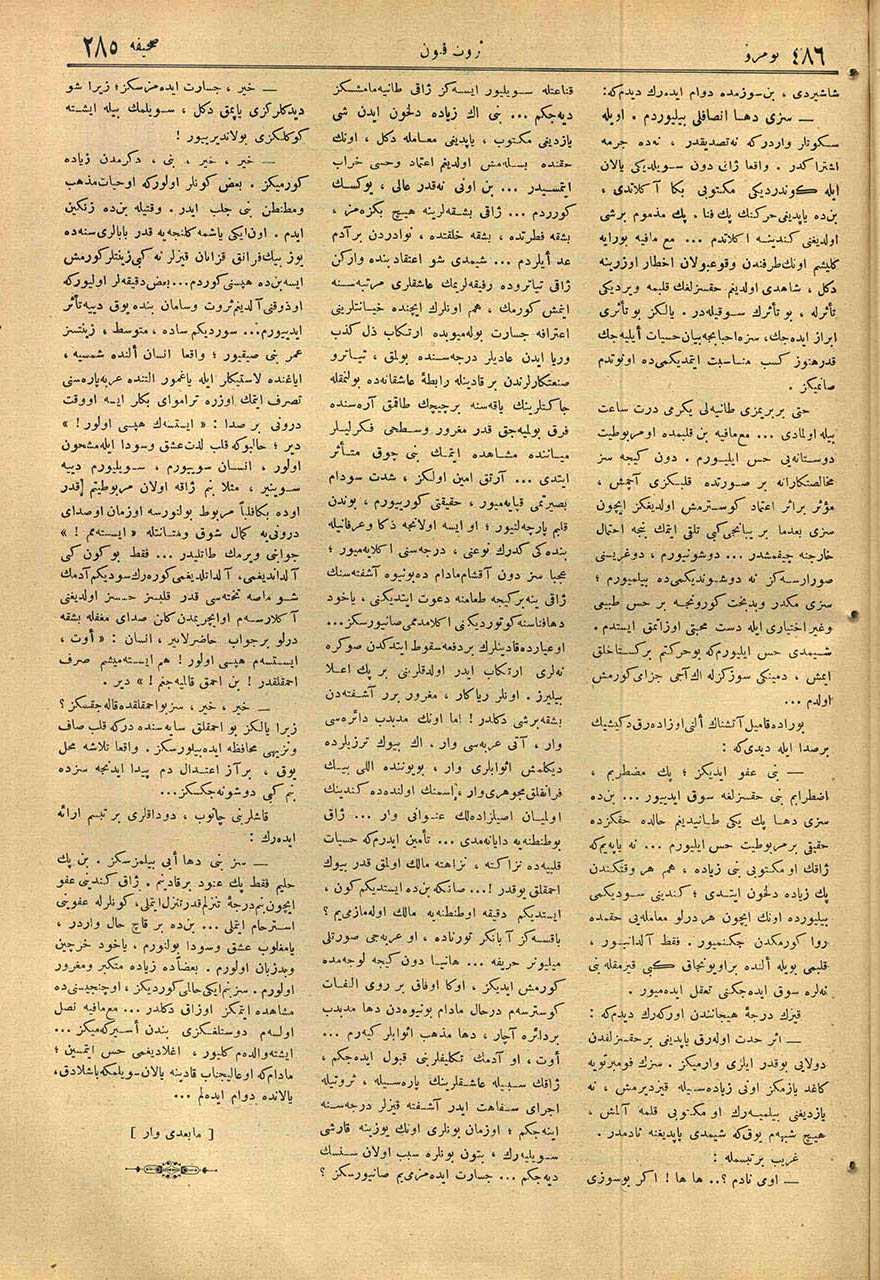 نومرو ٤٨٦
ثروت فنون
صحیفه ٢٨٥
شاشیردی ، بن سوزمده دوام ایده رك دیدم که:
— سزی دها انصافلی بیلیوردم . اویله
سکوتلر واردرکه نه تصدیقدر ، نه ده جرمه
اشتراکدر . واقعا ژانی دون سویلدیکی یالان
ایله کوندردیکی مکتوبی بکا آکلاتدی ،
بن ده یاپدیغی حرکتك پك فنا ، پك مذموم برشی
اولدیغنی کندیسنه اکلاتدم ... مع مافیه بورایه
کلیشم اونك طرفندن وقوعبولان اخطار اوزرینه
دکل ، شاهدی اولدیغم حقسزلغك قلبمه ویردیکی
تأثرله ، بو تأثرك سوقیله در . یالکز بو تأثری
ابراز ایده جك، سزه احبابجه بیان حسیات ایلیه جك
قدرهنوز کسب مناسبت ایتمدیکمی ده اونوتدم
صانمیکز .
حتی بربریمزی طانیه لی یکرمی درت ساعت
بیله اولمادی ... مع مافیه بن قلبمده اومربوطیت
دوستانه یی حس ایلیورم . دون کیجه سز
مخالصتکارانه بر صورتده قلبکزی آچمش ،
مؤثر براثر اعتماد کوسترمش اولدیغکز ایچون
سزی بعدما بر یبانجی کبی تلقی ایتمك بنجه احتمال
خارجنه چیقمشدر ... دوشونیورم ، دوغریسنی
صورارسه کز نه دوشوندیکمی ده بیلمیورم ؛
سزی مکدر وبدبخت کورونجه بر حس طبیعی
وغیر اختیاری ایله دست محبتی اوزاتمق ایستدم .
شیمدی حس ایلیورم که بوحرکتم برکستاخلق
ایمش ، دمینکی سوزکزله اك آجی جزامی کورمش
اولدم ...
بوراده قامیل آتشناك ألنی اوزاده رق دکیشیك
برصدا ایله دیدی که :
— بنی عفو ایدیکز ؛ پك مضطربم ،
اضطرابم بنی حقسزلغه سوق ایدییور ... بن ده
سزی دها پك یکی طانیدیغم حالده حقکزده
حقیقی برمربوطیت حس ایلیورم ... نه یاپه یم که
ژاقك او مکتوبی بنی زیاده ، هم هر وقتکندن
پك زیاده دلخون ایتدی ؛ کندیسنی سودیکمی
بیلیورده اونك ایچون هر درلو معامله یی حقمده
روا کورمکدن چکنمیور . فقط آلدانیور ،
قلبمی بویله ألنده براویونجاق کبی قیرمقله بنی
نه لره سوق ایده جکنی تعقل ایده میور .
قیزك درجۀ هیجانندن اورکه رك دیدم که :
— اثر حدت اوله رق یاپدیغی برحقسزلقدن
دولایی بوقدر ایلری وارمیکز . سزك قومبرتویه
کاغد یازمکز اونی زیاده سیله قیزدیرمش ، نه
یازدیغنی بیلمیه رك او مکتوبی قلمه آلمش ،
هیچ شبهم یوق که شیمدی یاپدیغنه نادمدر .
غریب برتبسمله :
— اومی نادم ؟.. ها ها ! اکر بوسوزی
قناعتله سویلیور ایسه کز ژاقی طانیه مامشکز
دیه جکم ... بنی اك زیاده دلخون ایدن شی
یازدیغی مکتوب ، یاپدیغی معامله دکل ، اونك
حقنده بسله مش اولدیغم اعتماد وحسی خراب
ایتمسیدر ... بن اونی نه قدر عالی ، یوکسك
کوردم ... ژاقی بشقه لرینه هیچ بکزه مز ،
بشقه فطرتده ، بشقه خلقتده ، نوادردن برآدم
عد أیلردم ... شیمدی شو اعتقادبنده وارکن
ژاقی تیاتروده رفیقه لریمك عاشقلری مرتبه سنه
اینمش کورمك ، هم اونلرك ایچنده خیانتلرینی
اعترافه جسارت بوله میوبده ارتکاب ذل کذب
وریا ایدن عادیلر درجه سنده بولمق ، تیاترو
صنعتکارلرندن بر قادینله رابطۀ عاشقانه ده بولنمقله
جاکتلرینك یاقه سنه برچیچك طاقمق آره سنده
فرق بولمیه جق قدر مغرور وسطحی فکرلیلر
میاننده مشاهده ایتمك بنی چوق متأثر
ایتدی ... آرتق امین اولکز ، شدت سودام
بصیرتمی قپایه میور ، حقیقتی کوریورم ، بوندن
قلبم پارچه لنیور ؛ او ایسه اولانجه ذکا وعرفانیله
بنده کی کدرك نوعنی ، درجه سنی اکلایه میور ؛
عجبا سز دون آقشام مادام ده بونیوه آشفته سنك
ژاقی ینه برکیجه طعامنه دعوت ایتدیکنی ، یاخود
دها فناسنه کوتوردیکنی اکلامدممی صانیورسکز...
اوعیارده قادینلرك بردفعه سقوط ایتدکدن صوکره
نه لری ارتکاب ایدر اولدقلرینی بر پك اعلا
بیلیرز . اونلر ریاکار ، مغرور برر آشفته دن
بشقه برشی دکلدر ! اما اونك مذبذب دائره سی
وار ، آتی عربه سی وار . اك بیوك ترزیلرده
دیکلمش اثوابلری وار ، بویوننده اللی بیك
فرانقلق مجوهری وار ، اسمنك اولنده ده کندینك
اولمیان اصیلزاده لك عنوانی وار ... ژاق
بوطنطنه یه دایانه مدی ... تأمین ایدرم که حسیات
قلبیه ده نزاکته ، نزاهته مالك اولمق قدر بیوك
احمقلق یوقدر !... صانکه بن ده ایستدیکم کون ،
ایستدیکم دقیقه اوطنطنه یه مالك اوله مازمی یم ؟
باقسه کز آ بانکر تورناده ، او عربه جی صورتلی
میلیونر حریفه ... هانیا دون کیجه لوجه مده
کورمش ایدیکز ، اوکا اوفاق بر روی التفات
کوسترسه م درحال مادام بونیوه دن دها مذبذب
بردائره آچار ، دها مذهب اثوابلر کیه رم ...
أوت ، او آدمك تکلیفلرینی قبول ایده جکم ،
ژاقك سببیله عاشقلرینك پاره سیله ، ثروتیله
اجرای سفاهت ایدر آشفته قیزلر درجه سنه
اینه جکم ؛ اوزمان بونلری اونك یوزینه قارشی
سویلیه رك ، بتون بونلره سبب اولان سنسك
دیه جکم ... جسارت ایده مزمی یم صانیورسکز ؟
— خیر ، جسارت ایده مزسکز ؛ زیرا شو
دیدکلرکزی یاپمق دکل ، سویلمك بیله ایشته
کوکلکزی بولاندیرییور !
— خیر ، خیر ، بنی ، دکرمدن زیاده
کورمیکز . بعض کونلر اولورکه اوحیات مذهب
ومطنطن بنی جلب ایدر . وقتیله بن ده زنکین
ایدم . اون ایکی یاشمه کلنجه یه قدر بابالری سنه ده
یوز بیك فرانق قزانان قیزلر نه کبی زینتلر کورمش
ایسه بن ده هپسنی کوردم...بعض دقیقه لر اولیورکه
اوذوقنی آلدیغم ثروت وسامان بنده یوق دییه تأثر
ایدییورم... سوردیکم ساده ، متوسط ، زینتسز
عمر بنی صیقیور ؛ واقعا انسان ألنده شمسیه ،
ایاغنده لاستیکلر ایله یاغمور التنده عربه پاره سنی
تصرف ایتمك اوزره تراموای بکلر ایسه اووقت
درونی بر صدا : « ایسته سه ك هپسی اولور ! »
دیر ؛ حالبوکه قلب لذت عشق وسودا ایله مشحون
اولور ، انسان سویبورم ، سویلیورم دییه
سوینیر ، مثلا بنم ژاقه اولان مربوطیتم قدر
اوده بکا قلباً مربوط بولنورسه اوزمان اوصدای
درونی یه کمال شوق ومتانتله « ایسته مم ! »
جوابنی ویرمك طاتلیدر ... فقط بوکون کبی
آلداندیغمی، آلداتلدیغمی کوره رك سودیکم آدمك
شو ماصه تخته سی قدر قلبسز حسسز اولدیغنی
آکلارسه م اوایچریمدن کلن صدای مغفله بشقه
درلو برجواب حاضرلانیر ، انسان : « أوت ،
ایسته سم هپسی اولور ! هم ایسته میشم صرف
احمقلقدر ! بن احمق قالمیه جغم ! » دیر .
— خیر ، خیر ، سز بو احمقلقده قاله جقسکز ؟
زیرا یالکز بو احمقلق سایه سنده درکه قلب صاف
ونزیهی محافظه ایده بیلورسکز . واقعا تلاشه محل
یوق ، برآز اعتدال دم پیدا ایدنجه سزده
بنم کبی دوشونه جکسکز...
قاشلرینی چاتوب ، دوداقلری بر تبسم ارائه
ایده رك :
— سز بنی دها أیی بیلمزسکز . بن پك
حلیم فقط پك عنود برقادینم . ژاق کندینی عفو
ایچون بنم درجۀ تنزلم قدر تنزل ایتملی، کونلرله عفوینی
استرحام ایتملی ... بن ده بر قاچ حال واردر ،
یا مغلوب عشق وسودا بولنورم ، یاخود خرچین
وبدزبان اولورم . بعضاًده زیاده متکبر ومغرور
اولورم . سز بنم ایکی حالمی کوردیکز ، اوچنجیسنی ده
مشاهده ایتمکز اوزاق دکلدر ... مع مافیه نصل
اولسه م دوستلغکزی بندن أسیرکه میکز ...
ایشته والده م کلیور ، اغلادیغمی حس ایتمسین ؛
مادام که اوعالیجناب قادینه یالان سویلمکه باشلادق،
یالانده دوام ایده لم ...
[ مابعدی وار ]